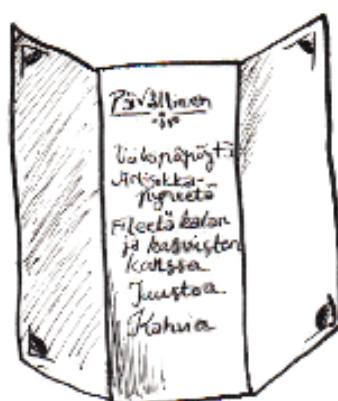 Päivällinen
Artisokka-
pyreetä
Fileetä kalan
ja kasvisten
kanssa
Juustoa
Kahvia